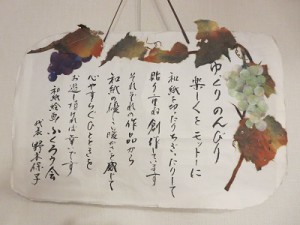 ゆっくりのんびり
楽しくをモットーに
和紙を切ったりちぎったりして
貼り重ね創作しています
それぞれの作品から
和紙の優しい暖かさを感じて
心やすらぐひとときを
お過し頂ければ幸いです
和紙絵画 ふくろう会
代表